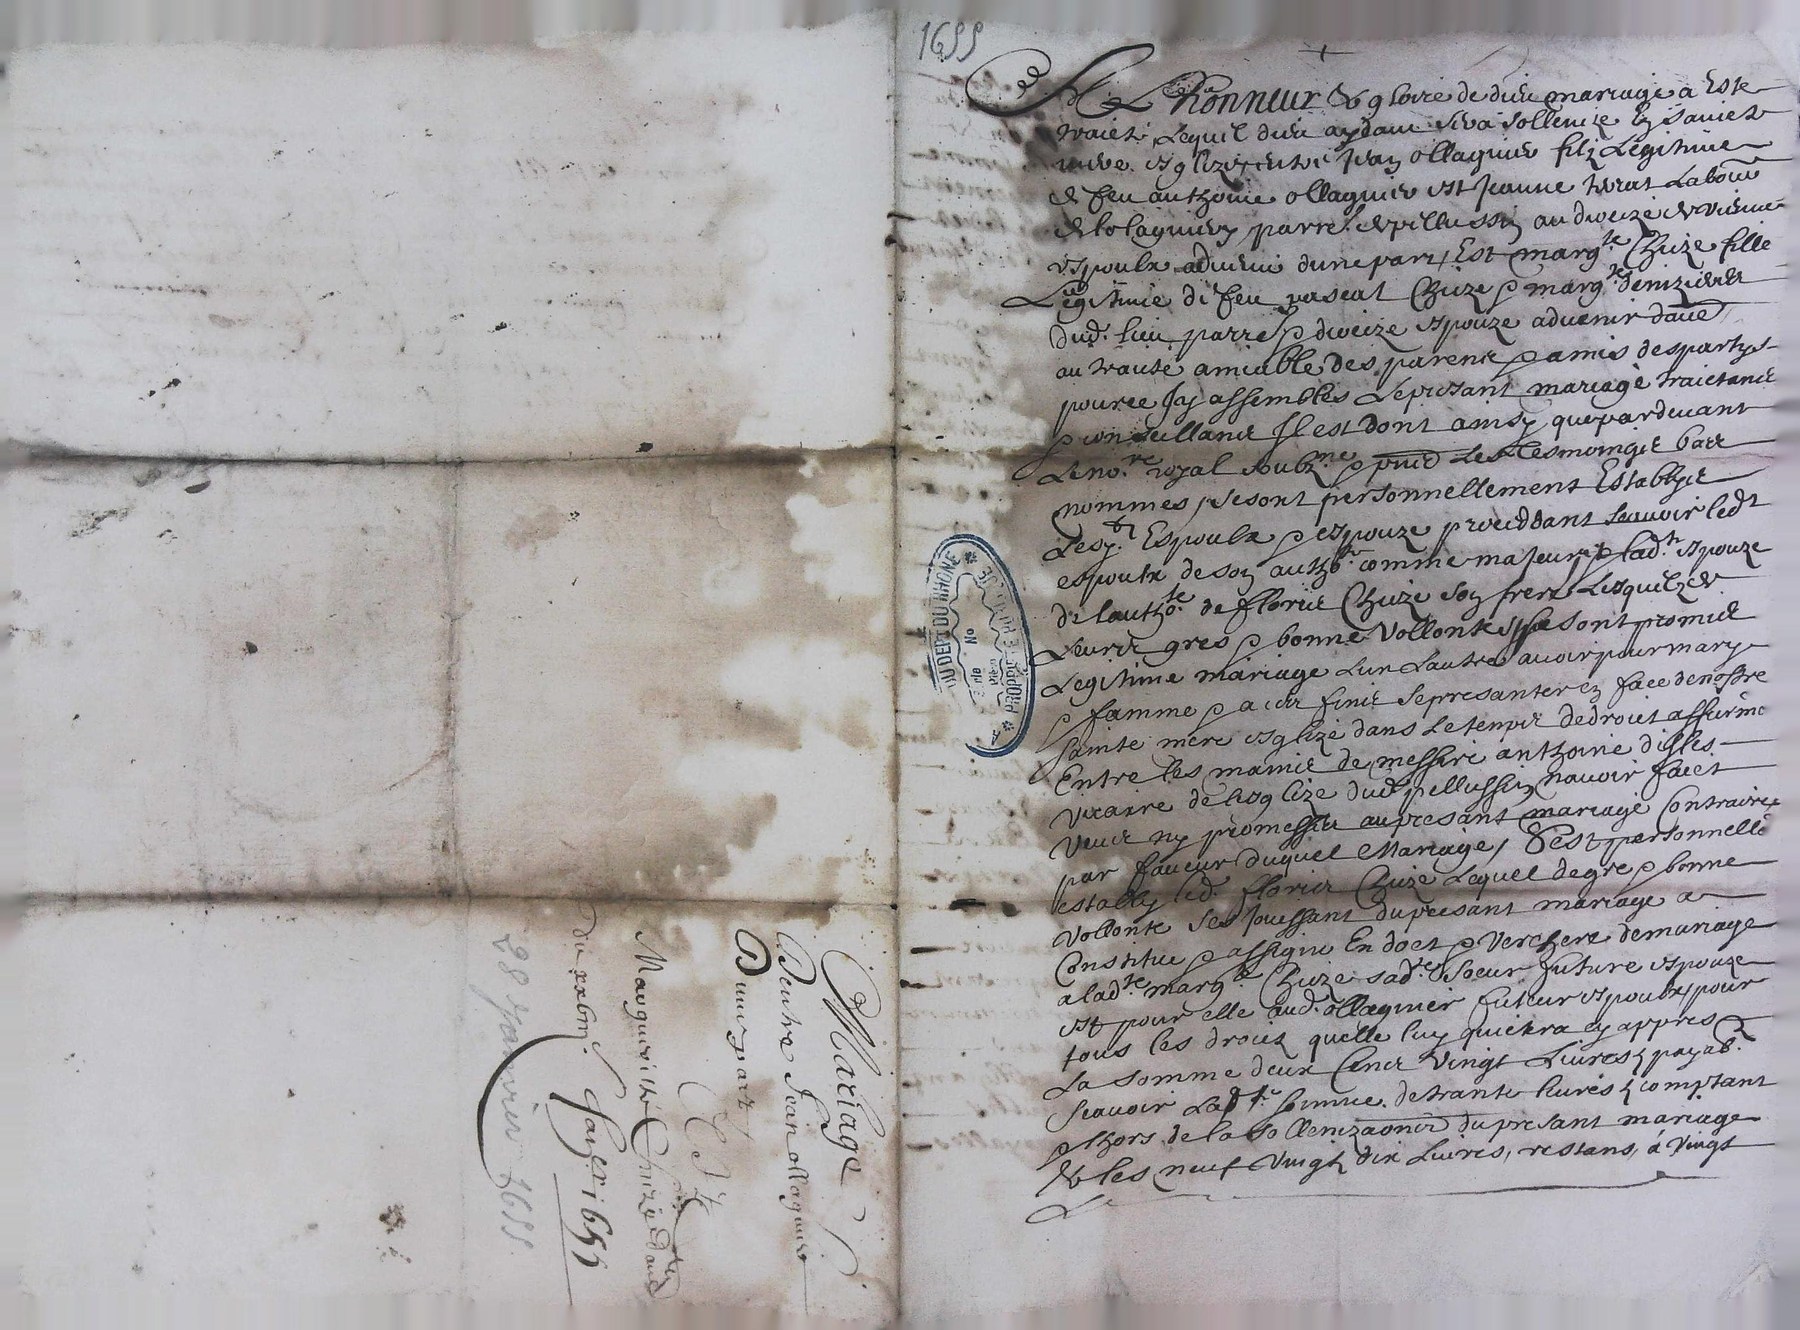 1655
A L'honneur & gloire de dieu mariage à Este
traicté Lequel dieu aydant sera sollenize En saincte
mere esglize entre Jean ollagnier filz Legitime
de feu anthoine ollagnier est Jeanne
de lolagniery parr. de pillussin au dioceze de vienne
espoulx advenir dune part, Est marg.te Chize fille
Legitime de feu pascal Chize & marg.te
dud. lieu parr.e & dioceze espouze advenir dautre
au traicté amiable des parens & amis des partyes
pource Jcy assembles Le presant mariage traictans
& conseillans Jl est dont ainsy que pardevant
Le no.re royal soubz.ne & pnts Les tesmoings bas
nommes, se sont personnellement Establys
Lesd. Espoulx & espouze proceddant scavoir led.t
espoulx de son autho.te comme majeur & lad.te espouze
de lautho.te de floris Chize son frere Lesquelz de
Leurs gres & bonne vollontes se sont promis
Legitime mariage Lun Lautre avoir pour mary
& famme & a ces fins se presanter en face de nostre
sainte mere esglize dans Le temps de droict affirmé
Entre les mains de messire anthoine
vicaire de lesglize dud. pellussin navoir faict
veuz ny promesses au presant mariage Contraires
par faveur duquel Mariage, sest personnelle
estably led. floris Chize Lequel de gre & bonne
vollonte Sesjouissant du presant mariage a
Constitue & assigne En doct & verchere de mariage
a lad.te marg.te Chize sad.te soeur future espouze
est pour elle aud. ollagnier futeur espoulx, pour
tous les droictz quelle luy quictera cy appres
La somme deux Cens vingt Livres, payab.
scavoir Lad.te somme de trante livres comptant
& lhors de la sollenizaonr du presant mariage
& les neuf vingtz dix Livres, restans, à vingt
DU DEP.T DU RHONE
No
Pièce
PROPRIÉTÉ PUBLIQUE
Mariage
Dentre Jean ollagnier
Dune part
Et
Marguerite Chize Dautre
Du xxbiii
Janvier 1655
28 Janvier 1655.